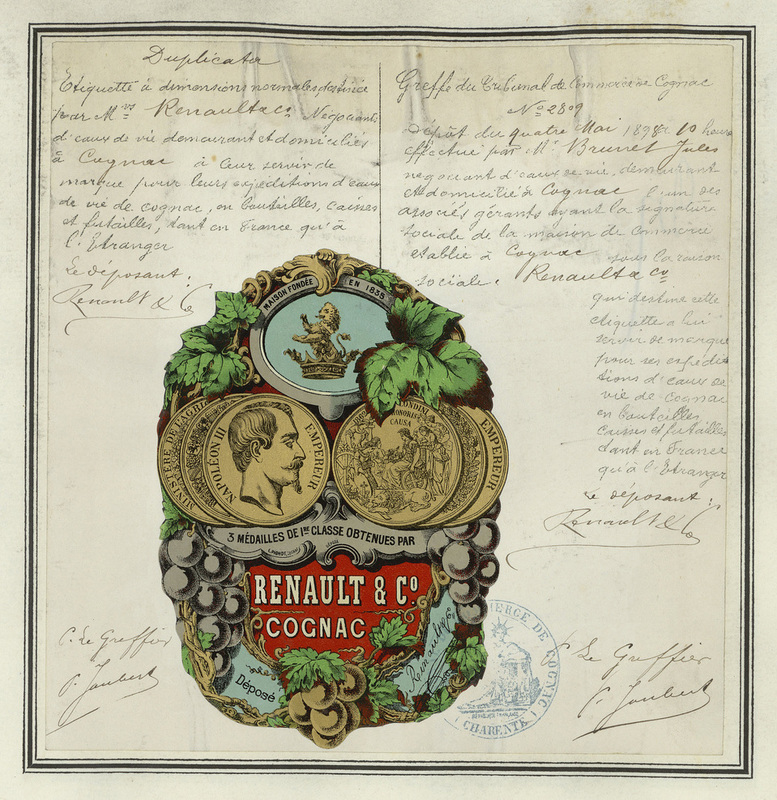 Duplicata
Etiquette à dimensions normales, destinée
par Mrs Renault & Co Négociants
d'eaux de vie demeurant et domiciliés
à Cognac à leur servir de
marque pour leurs expéditions d'eaux
de vie de cognac, en bouteilles, caisses
et futailles, tant en France qu'à
l'Etranger
Le déposant:
Renault & Co
Greffe du Tribunal de Commerce de Cognac
No 2809
Dépôt du quatre Mai 1898 10 heures
effectué par Mr Brunet Jules
négociant d'eaux de vie, demeurant
et domicilié à Cognac l'un des
associés gérants ayant la signature
sociale de la maison de commerce
établie à Cognac sous la raison
sociale: Renault & Co
qui destine cette
étiquette à lui
servir de marque
pour ses expédi-
tions d'eaux de
vie de cognac
en bouteilles
caisses et futailles
tant en France
qu'à l'Etranger
Le déposant:
Renault & Co
MAISON FONDÉE EN 1835
MINISTÈRE DE L'AGRI
NAPOLÉON III EMPEREUR
LONDINI
HONORIS
CAUSA
EMPEREUR
3 MÉDAILLES DE 1RE CLASSE OBTENUES PAR
RENAULT & Co
COGNAC
Déposé
Renault & Co
P. Le Greffier
P. Joubert
COMMERCE DE COGNAC
CHARENTE
P. Le Greffier
P. Joubert